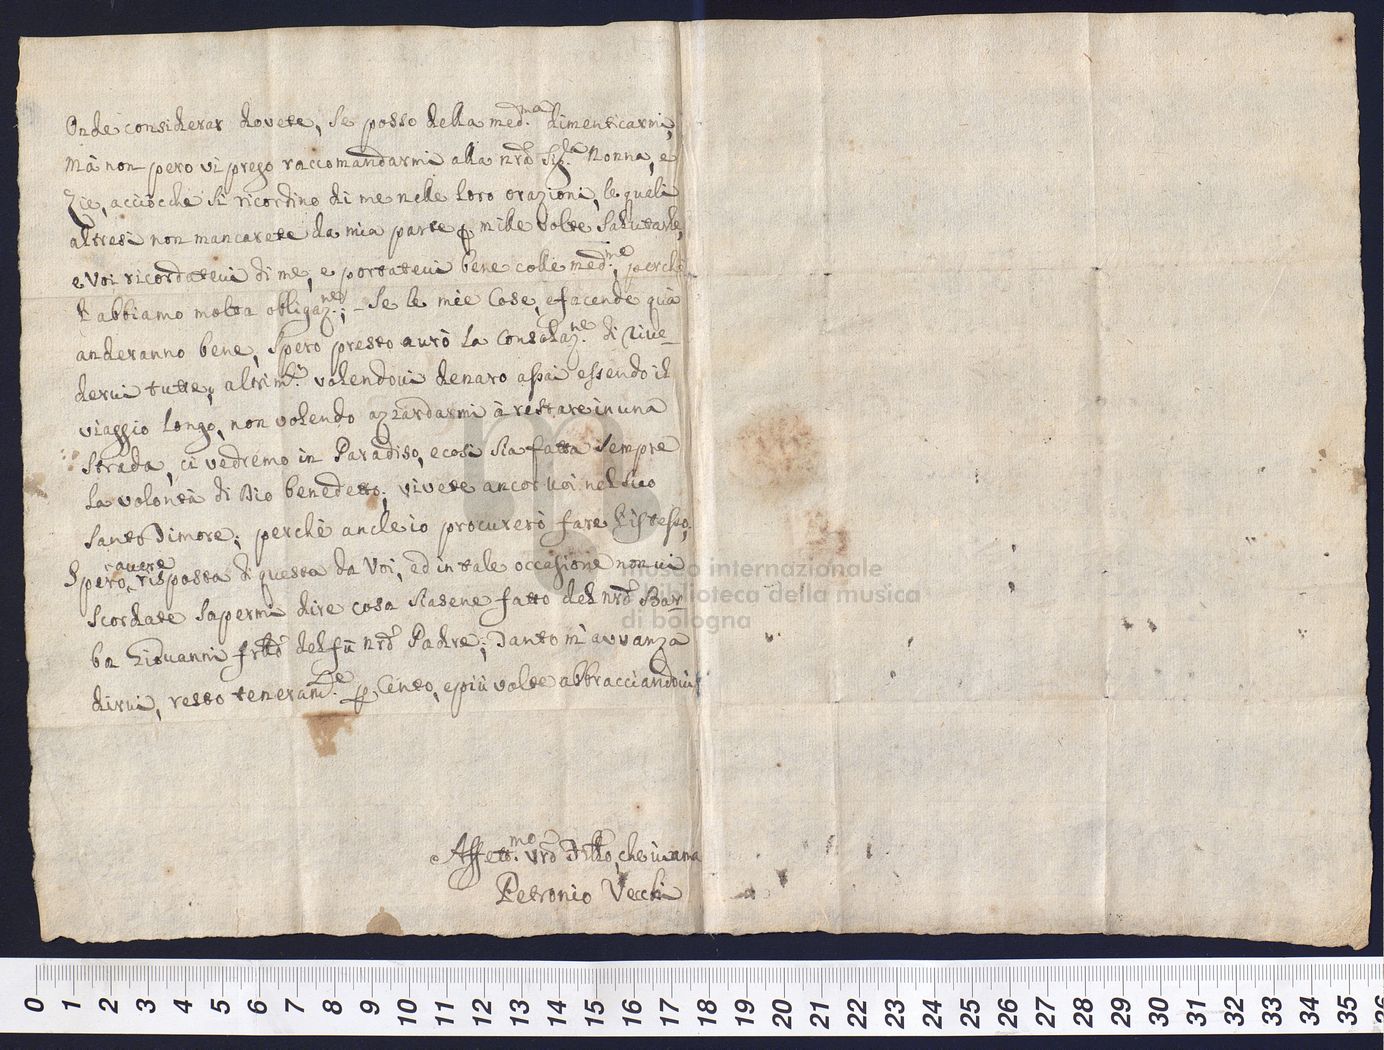 Onde considerar dovete, se posso della med.ma dimenticarmi,
Mà non pero vi prego raccomandarmi alla nrã Sig.la Nonna, e
Zie, acciocche si ricordino di me nelle loro orazioni, le quali
altresi non mancarete da mia parte p mille volte salutarle,
e Voi ricordatevi di me, e portatevi bene colle med.me, perche
l'abbiamo molta obligaz.ne; Se le mie Cose, e facende quà
anderanno bene, spero presto aurò la Consolaz.ne di rive-
dervi tutte, altrim.ti volendovi denaro assai essendo il
viaggio longo, non volendo azzardarmi à restare in una
strada, ci vedremo in Paradiso, e così sia fatta sempre
la volontà di Dio benedetto, vivete ancor voi nel suo
santo Timore; perchè anche io procurerò fare l'istesso,
Spero, avere risposta di questa da Voi, ed in tale occasione non vi
scordate sapermi dire cosa siasene fatto del nrõ Bar-
ba Giovanni frtto del fù nrõ Padre; Tanto m'avvanza
dirvi, resto teneram.te p Cento, e più volte abbracciandovi
Affett.mo vrõ Frtto, che v'ama
Petronio Vecchi
museo internazionale
e biblioteca della musica
di bologna
0 1 2 3 4 5 6 7 8 9 10 11 12 13 14 15 16 17 18 19 20 21 22 23 24 25 26 27 28 29 30 31 32 33 34 35 36